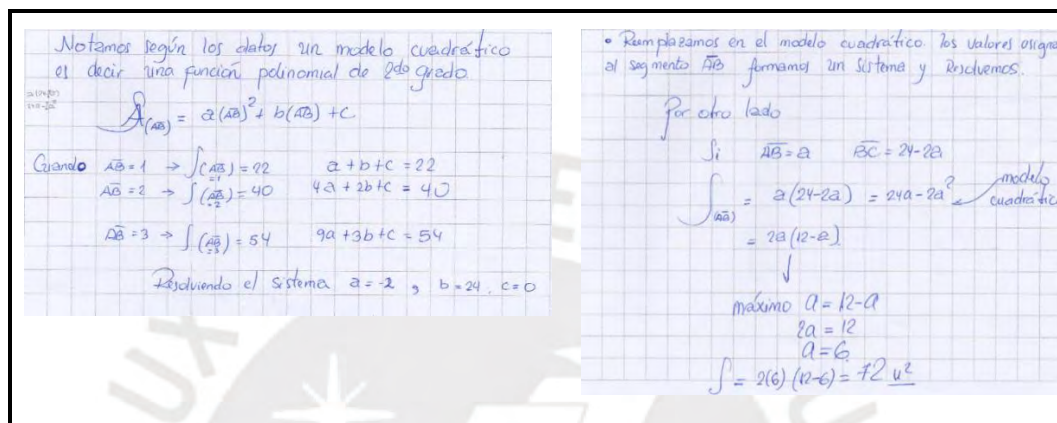 Notamos según los datos un modelo cuadrático
es decir una función polinomial de 2do grado.
A(AB) = a(AB)² + b(AB) + c
Cuando AB = 1 → ∫(AB=1) = 22 a + b + c = 22
AB = 2 → ∫(AB=2) = 40 4a + 2b + c = 40
AB = 3 → ∫(AB=3) = 54 9a + 3b + c = 54
Resolviendo el sistema a = -2 , b = 24 , c = 0
• Reemplazamos en el modelo cuadrático los valores
al segmento AB formamos un sistema y Resolvemos.
Por otro lado
Si AB = a BC = 24-2a
∫(AB) = a(24-2a) = 24a - 2a² modelo cuadrático
= 2a(12-a)
↓
máximo a = 12-a
2a = 12
a = 6
∫ = 2(6) (12-6) = 72 u²